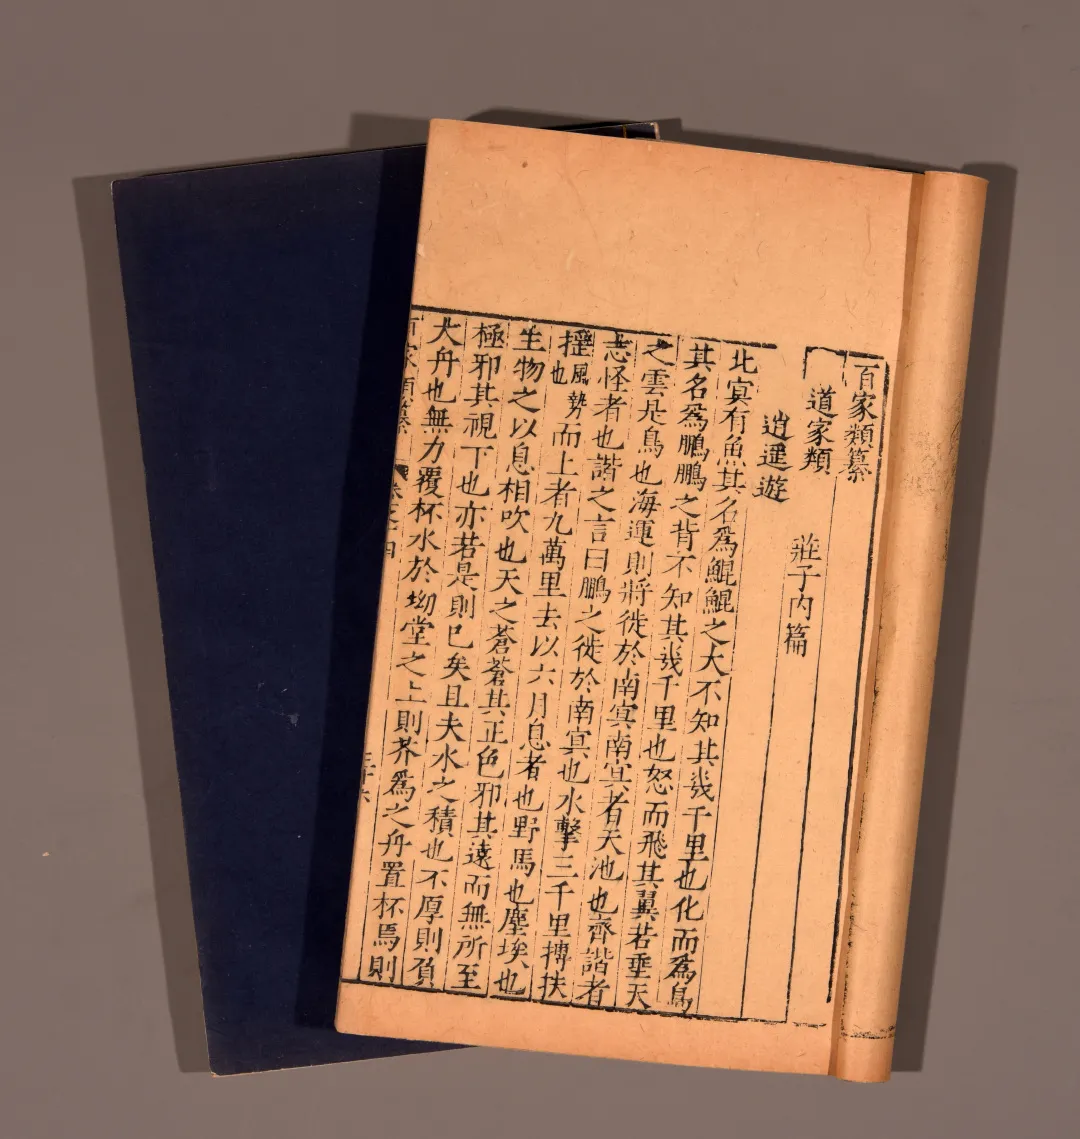 百家類纂
道家類
莊子內篇
逍遥遊
北冥有魚其名爲鯤鯤之大不知其幾千里也化而爲鳥
其名爲鵬鵬之背不知其幾千里也怒而飛其翼若垂天
之雲是鳥也海運則將徙於南冥南冥者天池也齊諧者
志怪者也諧之言曰鵬之徙於南冥也水擊三千里摶扶
搖風勢也而上者九萬里去以六月息者也野馬也塵埃也
生物之以息相吹也天之蒼蒼其正色邪其遠而無所至
極邪其視下也亦若是則已矣且夫水之積也不厚則負
大舟也無力覆杯水於坳堂之上則芥爲之舟置杯焉則
百家類纂